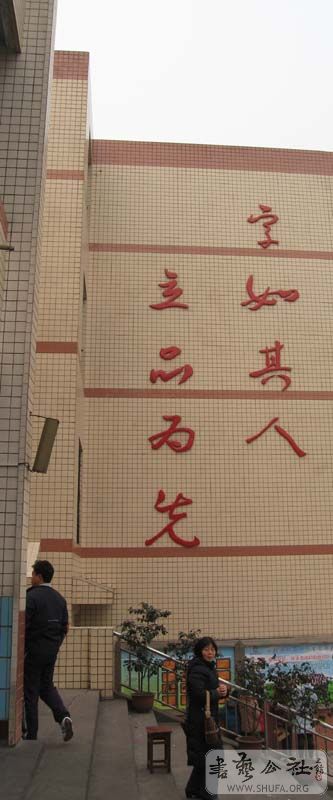 字如其人
立品为先
書藝公社
WWW.SHUFA.ORG